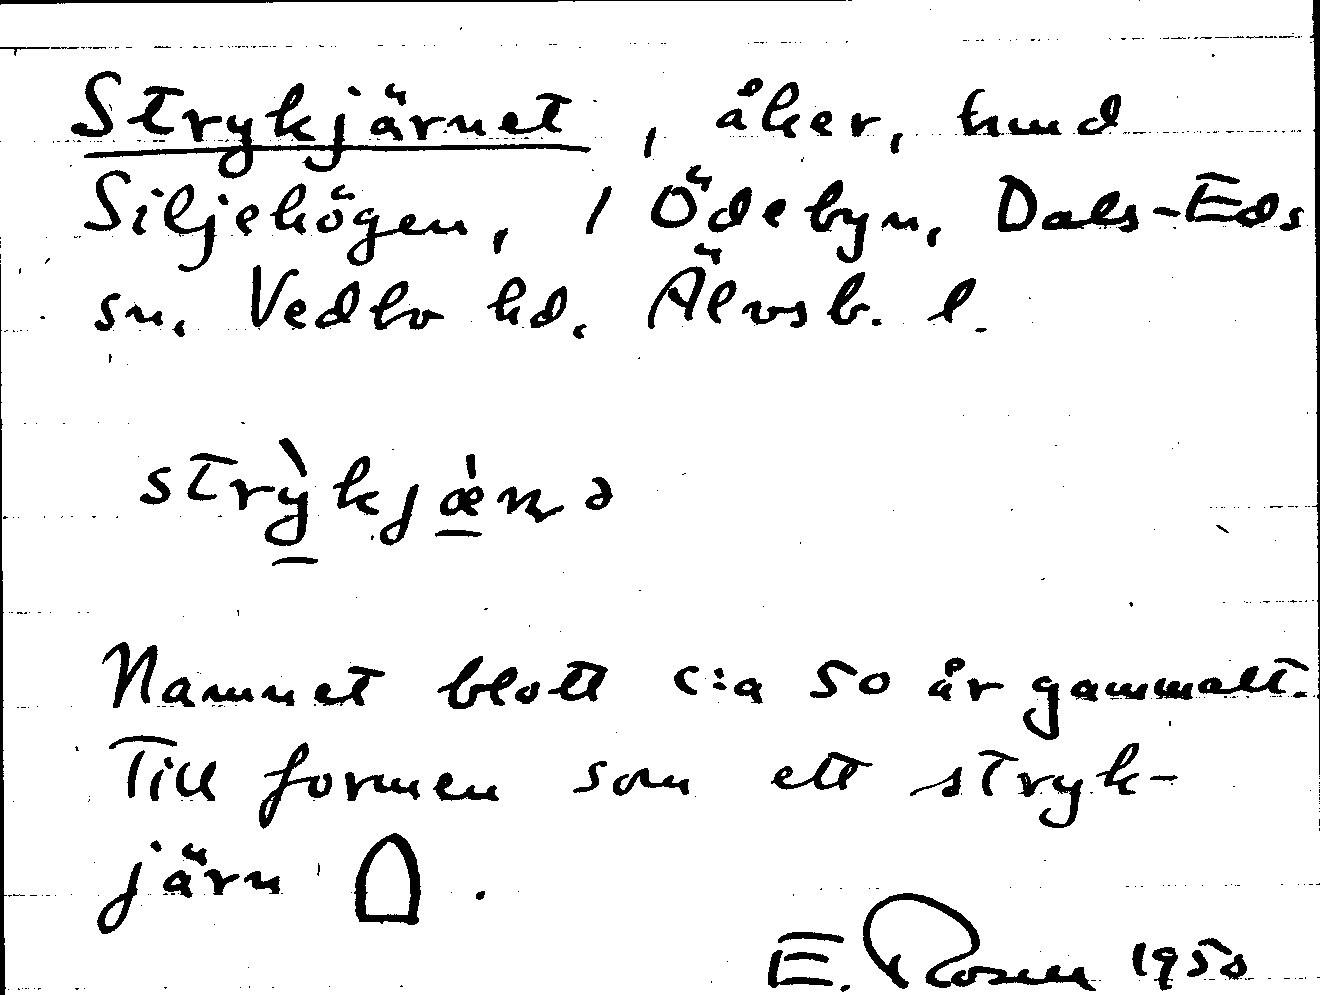 Strykjärnet, åker, hmd
Siljehögen, 1 Ödebyn, Dals-Eds
sn, Vedbo hd, Älvsb. l.
strỳkjæ̀ɳə
Namnet blott c:a 50 år gammalt.
Till formen som ett stryk-
järn .
E. Rosen 1950